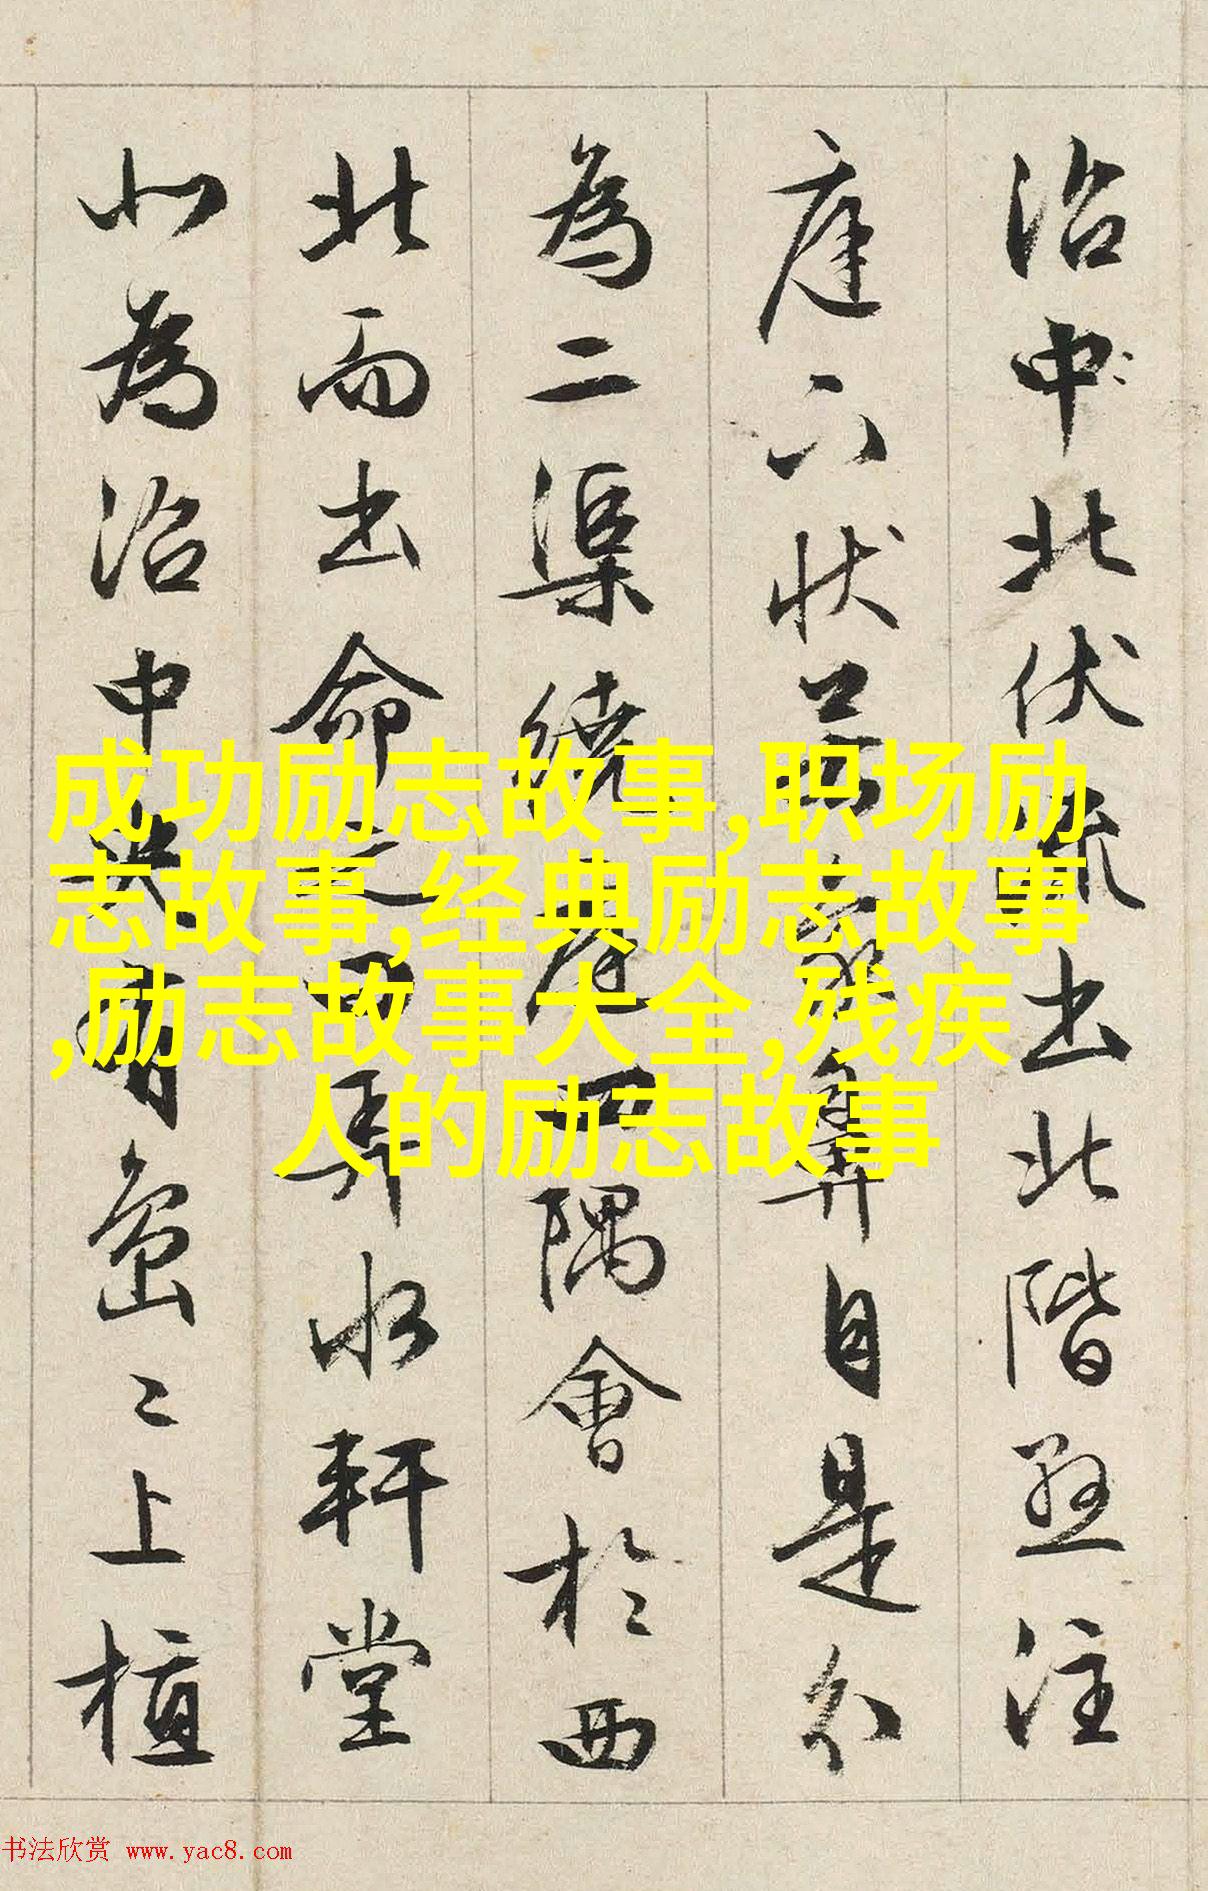 沼中北伏流出北階懸注
庭下状若象鼻自是分
為二渠繞庭四隅會於西
北而出命之曰弄水軒堂
北為沼中央有島〻上植
成功励志故事,职场励
志故事,经典励志故事
,励志故事大全,残疾
人的励志故事
书法欣赏 www.yac8.com